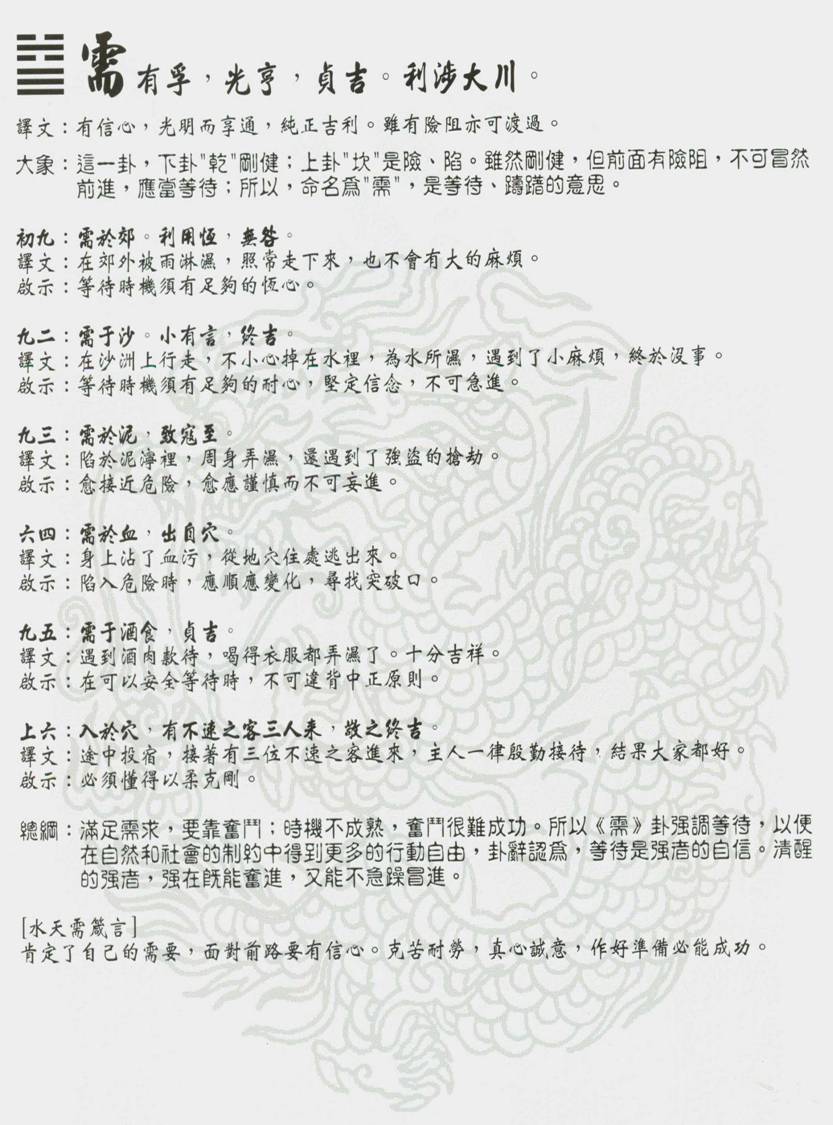 需 有孚，光亨，貞吉。利涉大川。
譯文：有信心，光明而享通，純正吉利。雖有險阻亦可渡過。
大象：這一卦，下卦"乾"剛健；上卦"坎"是險、陷。雖然剛健，但前面有險阻，不可冒然
前進，應當等待；所以，命名爲"需"，是等待、躊躇的意思。
初九：需於郊。利用恆，無咎。
譯文：在郊外被雨淋濕，照常走下來，也不會有大的麻煩。
啟示：等待時機須有足夠的恆心。
九二：需于沙。小有言，終吉。
譯文：在沙洲上行走，不小心掉在水裡，為水所濕，遇到了小麻煩，終於沒事。
啟示：等待時機須有足夠的耐心，堅定信念，不可急進。
九三：需於泥，致寇至。
譯文：陷於泥濘裡，周身弄濕，還遇到了強盜的搶劫。
啟示：愈接近危險，愈應謹慎而不可妄進。
六四：需於血，出自穴。
譯文：身上沾了血污，從地穴住處逃出來。
啟示：陷入危險時，應順應變化，尋找突破口。
九五：需于酒食，貞吉。
譯文：遇到酒肉款待，喝得衣服都弄濕了。十分吉祥。
啟示：在可以安全等待時，不可違背中正原則。
上六：入於穴，有不速之客三人来，敬之終吉。
譯文：途中投宿，接著有三位不速之客進來，主人一律殷勤接待，結果大家都好。
啟示：必須懂得以柔克剛。
總綱：滿足需求，要靠奮鬥；時機不成熟，奮鬥很難成功。所以《需》卦强調等待，以便
在自然和社會的制約中得到更多的行動自由，卦辭認爲，等待是强者的自信。清醒
的强者，强在既能奮進，又能不急躁冒進。
[水天需箴言]
肯定了自己的需要，面對前路要有信心。克苦耐勞，真心誠意，作好準備必能成功。